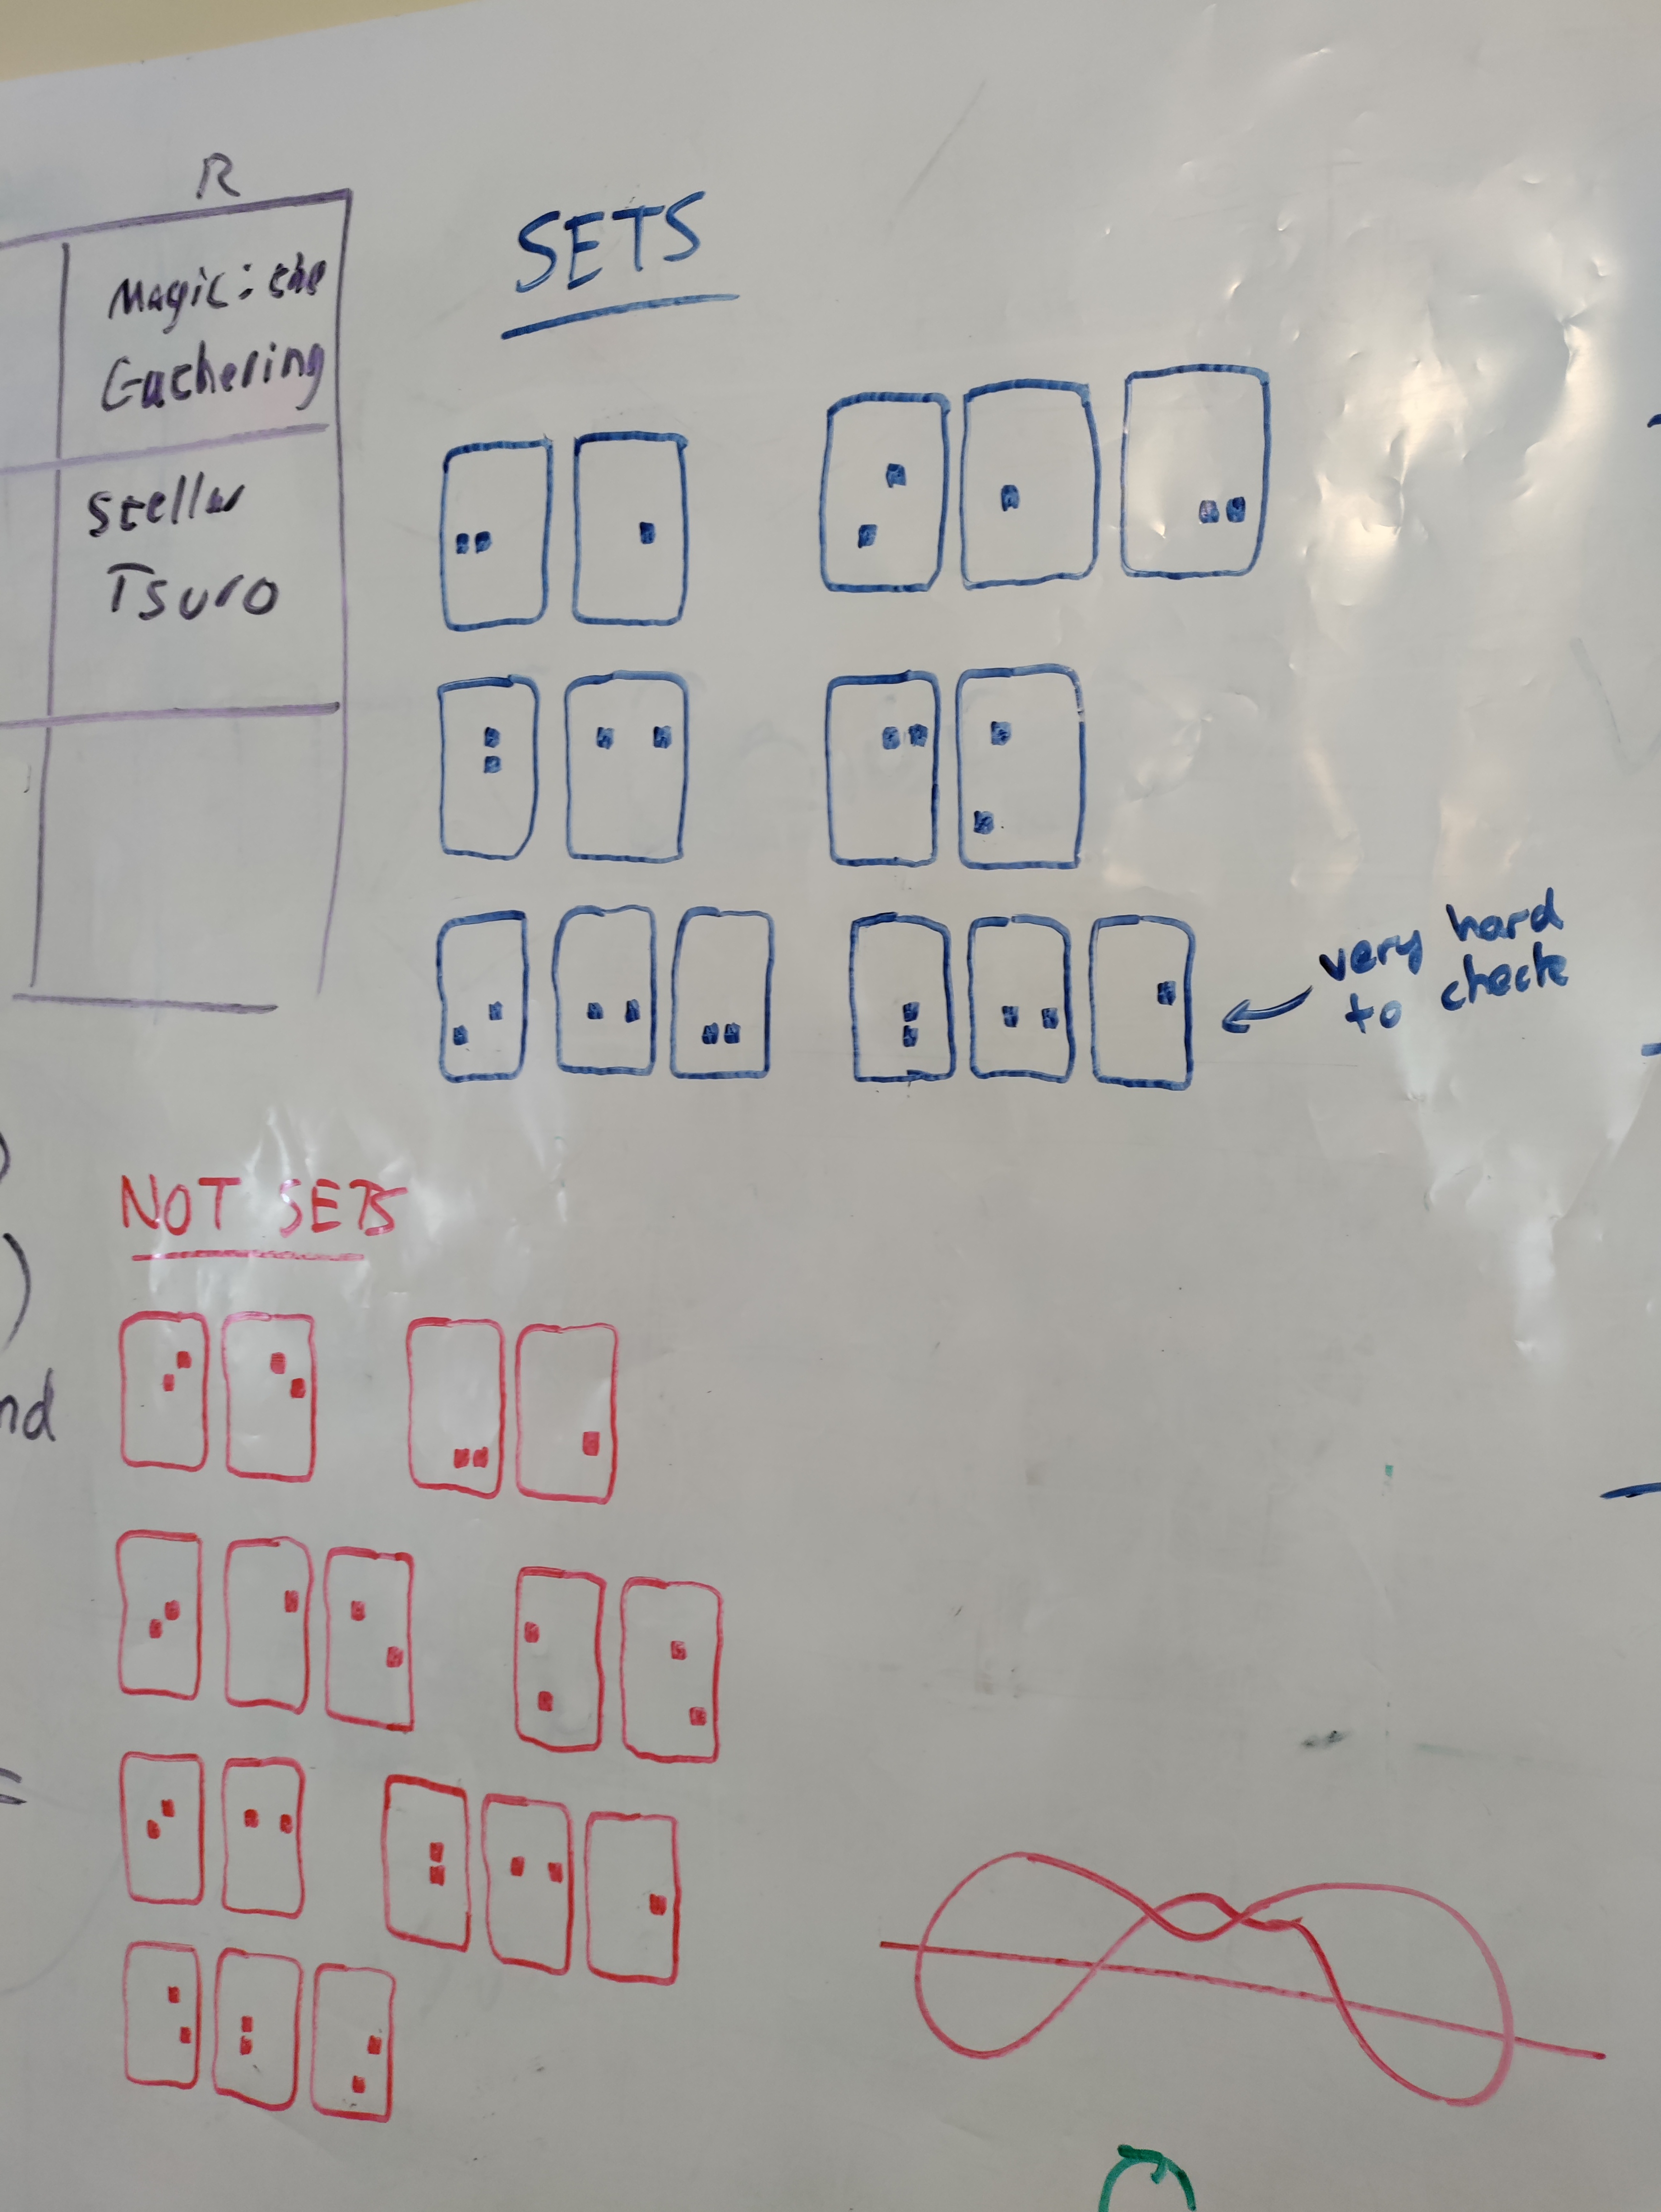 R
Magic: the
Gathering
Stellar
Tsuro
SETS
very hard
to check
NOT SETS
nd